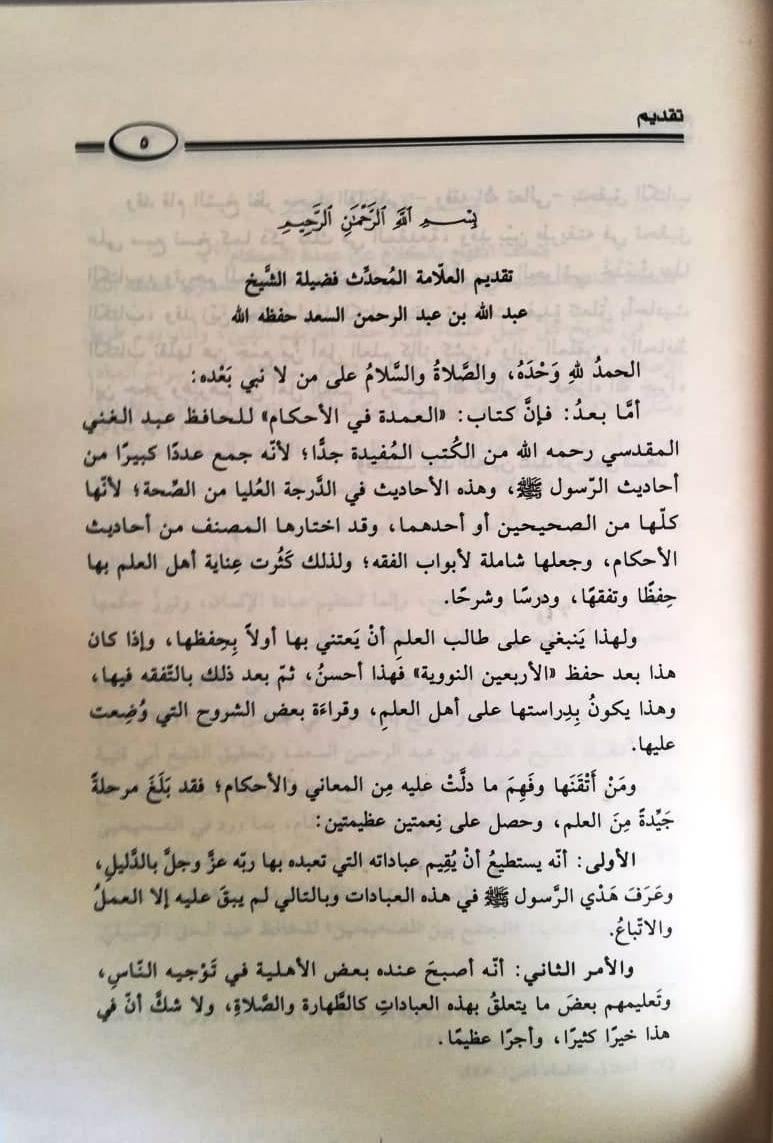 تقديم
٥
بِسْمِ ٱللَّهِ ٱلرَّحْمَٰنِ ٱلرَّحِيمِ
تقديم العلّامة المُحدِّث فضيلة الشَّيخ
عبد الله بن عبد الرحمن السعد حفظه الله
الحمدُ للهِ وَحْدَهُ، والصَّلاةُ والسَّلامُ على من لا نبي بَعْده:
أمَّا بعدُ: فإنَّ كتاب: «العمدة في الأحكام» للحافظ عبد الغني
المقدسي رحمه الله من الكُتب المُفيدة جدًّا؛ لأنّه جمع عددًا كبيرًا من
أحاديث الرّسول ﷺ، وهذه الأحاديث في الدَّرجة العُليا من الصِّحة؛ لأنّها
كلّها من الصحيحين أو أحدهما، وقد اختارها المصنف من أحاديث
الأحكام، وجعلها شاملة لأبواب الفقه؛ ولذلك كَثُرت عِناية أهل العلم بها
حِفظًا وتفقهًا، ودرسًا وشرحًا.
ولهذا يَنبغي على طالب العلمِ أنْ يَعتني بها أولاً بِحِفظها، وإذا كان
هذا بعد حفظ «الأربعين النووية» فهذا أحسنُ، ثمّ بعد ذلك بالتّفقه فيها،
وهذا يكونُ بِدِراستها على أهل العلمِ، وقراءَة بعض الشروح التي وُضِعت
عليها.
ومَنْ أَتْقَنَها وفَهِمَ ما دلَّتْ عليه مِن المعاني والأحكام؛ فقد بَلَغَ مرحلةً
جَيِّدةً مِنَ العلم، وحصل على نِعمتين عظيمتين:
الأولى: أنّه يستطيعُ أنْ يُقِيم عباداته التي تعبده بها ربّه عزَّ وجلَّ بالدَّليلِ،
وعَرَفَ هَدْي الرَّسول ﷺ في هذه العبادات وبالتالي لم يبقَ عليه إلا العملُ
والاتّباعُ.
والأمر الثاني: أنّه أصبحَ عنده بعض الأهلية في تَوْجيه النّاسِ،
وتَعليمهم بعضَ ما يتعلقُ بهذه العباداتِ كالطَّهارة والصَّلاةِ، ولا شكَّ أنّ في
هذا خيرًا كثيرًا، وأجرًا عظيمًا.